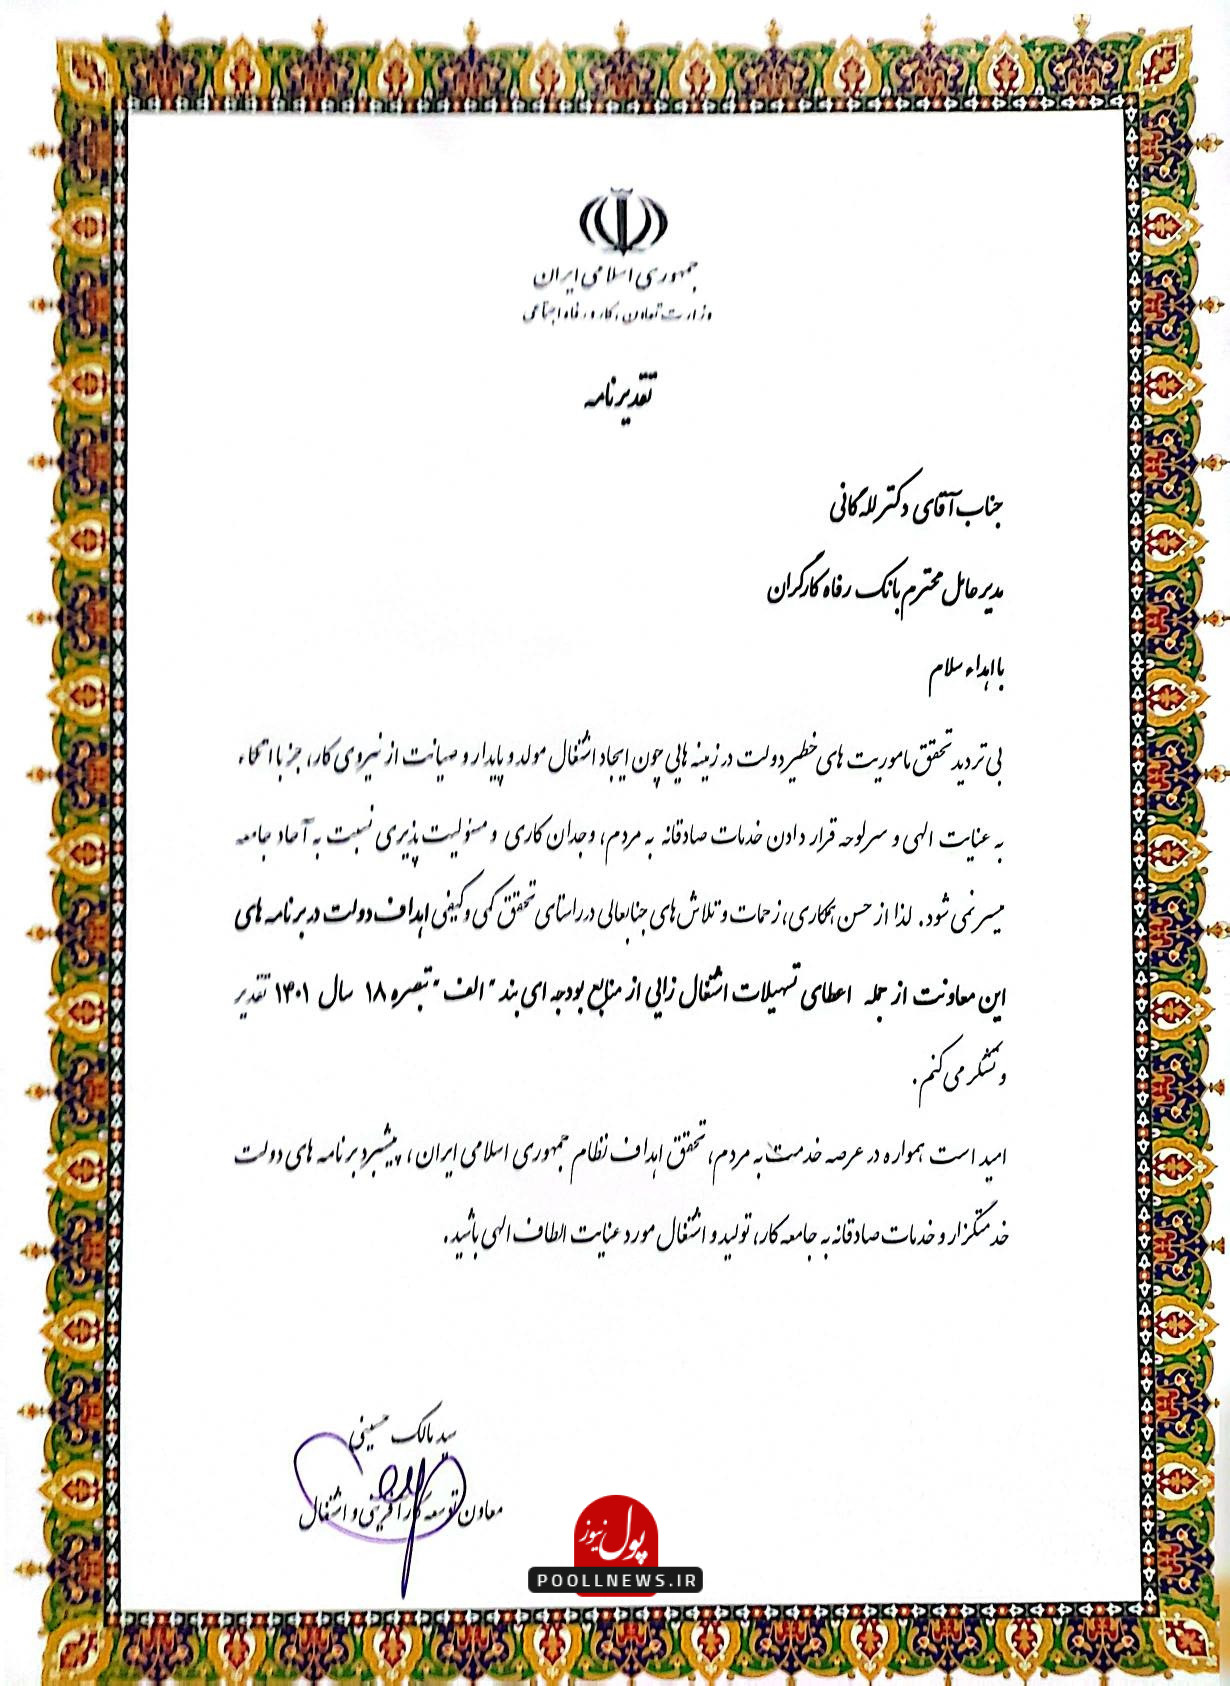 جمهوری اسلامی ایران
وزارت تعاون، کار و رفاه اجتماعی
تقدیرنامه
جناب آقای دکتر لله گانی
مدیر عامل محترم بانک رفاه کارگران
با اهداء سلام
بی تردید تحقق ماموریت های خطیر دولت در زمینه هایی چون ایجاد اشتغال مولد و پایدار و صیانت از نیروی کار، جز با اتکاء
به عنایت الهی و سرلوحه قرار دادن خدمات صادقانه به مردم، وجدان کاری و مسئولیت پذیری نسبت به آحاد جامعه
میسر نمی شود. لذا از حسن همکاری، زحمات و تلاش های جنابعالی در راستای تحقق کمی و کیفی اهداف دولت در برنامه های
این معاونت از جمله اعطای تسهیلات اشتغال زایی از منابع بودجه ای بند "الف" تبصره ۱۸ سال ۱۴۰۱ تقدیر
و تشکر می کنم.
امید است همواره در عرصه خدمت به مردم، تحقق اهداف نظام جمهوری اسلامی ایران، پیشبرد برنامه های دولت
خدمتگزار و خدمات صادقانه به جامعه کار، تولید و اشتغال مورد عنایت الطاف الهی باشید.
سید مالک حسینی
معاون توسعه کارآفرینی و اشتغال
پول نیوز
POOLLNEWS.IR